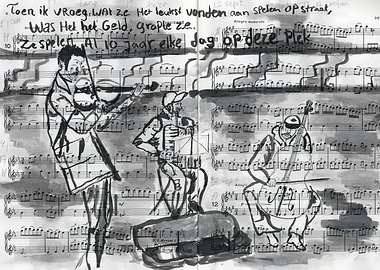 Toen ik vroeg. Wat ze Het leukst vonden aan spelen op straat,
Was Het het Geld, grapte ze.
Ze spelen Al 10 jaar elke dag op deze Plek
10
12